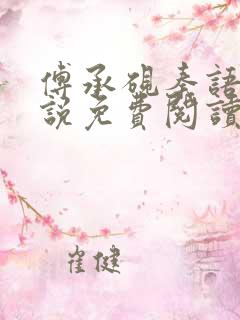 傅承硯秦語
說免費閱讀
崔健